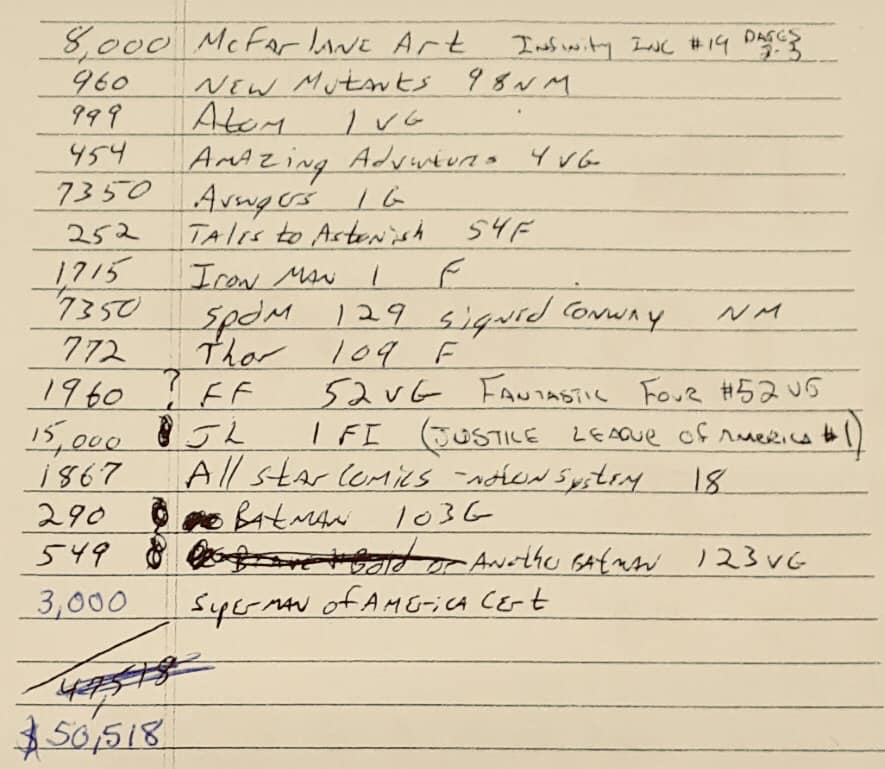 8,000 McFarlane Art Infinity Inc #19 PAGES 2-3
960 New Mutants 98 NM
999 Atom 1 VG
454 Amazing Adventures 4 VG
7350 Avengers 1 G
252 Tales to Astonish 54 F
1,715 Iron Man 1 F
7350 Spdm 129 signed Conway NM
772 Thor 109 F
1960 ? FF 52 VG FANTASTIC FOUR #52 VG
15,000 JL 1 FI (JUSTICE LEAGUE OF AMERICA #1)
1867 All Star Comics - not on system 18
290 BATMAN 103 G
549 Brave & Bold or Another BATMAN 123 VG
3,000 Superman of America Cert
47,518
$50,518